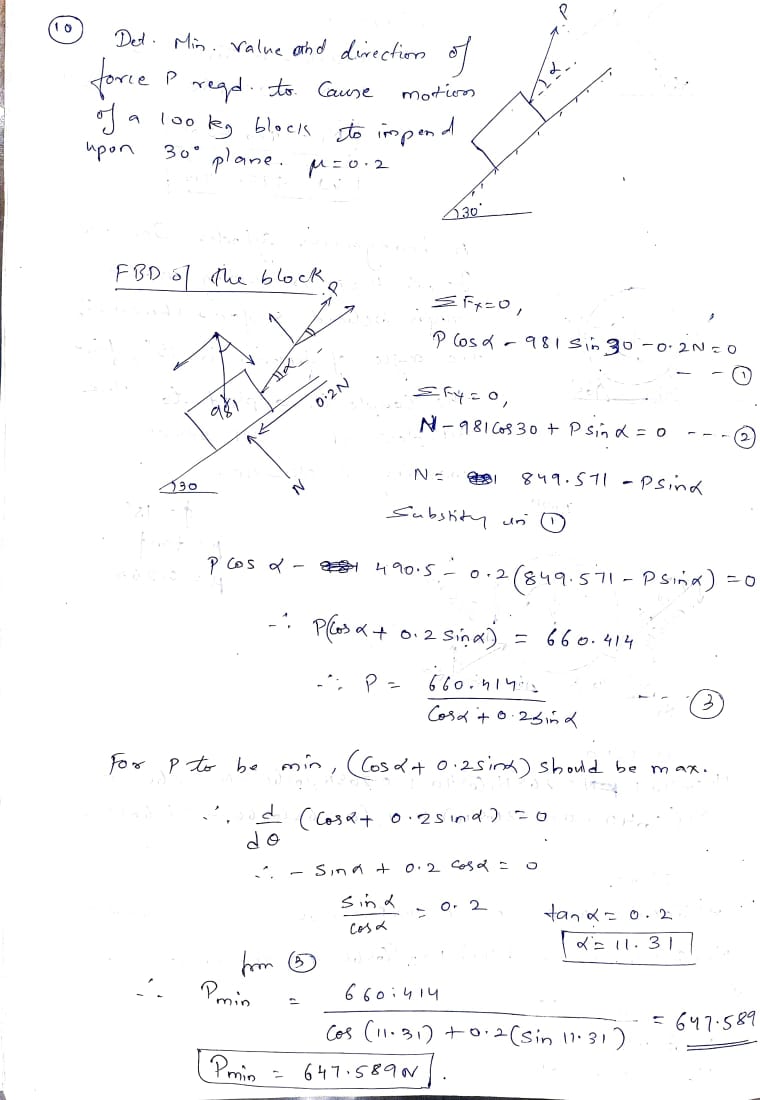 (10)
Det. Min. value and direction of
force P reqd. to Cause motion
of a 100 kg block to impend
upon 30° plane. μ=0.2
P
α
30°
FBD of the block
P
α
981
0.2N
30
N
ΣFx=0,
P Cosα - 981 Sin 30 - 0.2N = 0
- - (1)
ΣFy = 0,
N - 981 Cos 30 + P sin α = 0 - - - (2)
N = 849.571 - P sinα
Substity in (1)
P Cos α - 490.5 - 0.2(849.571 - P sinα) = 0
∴ P(Cosα + 0.2 Sinα) = 660.414
∴ P = 660.414 / Cosα + 0.2sinα - - - (3)
For P to be min, (Cosα + 0.2sinα) should be max.
∴ d/dθ (Cosα + 0.2sinα) = 0
∴ - Sinα + 0.2 Cosα = 0
Sinα / Cosα = 0.2 tanα = 0.2
α = 11.31
from (3)
∴ Pmin = 660.414 / Cos (11.31) + 0.2(Sin 11.31) = 647.589
Pmin = 647.589N.